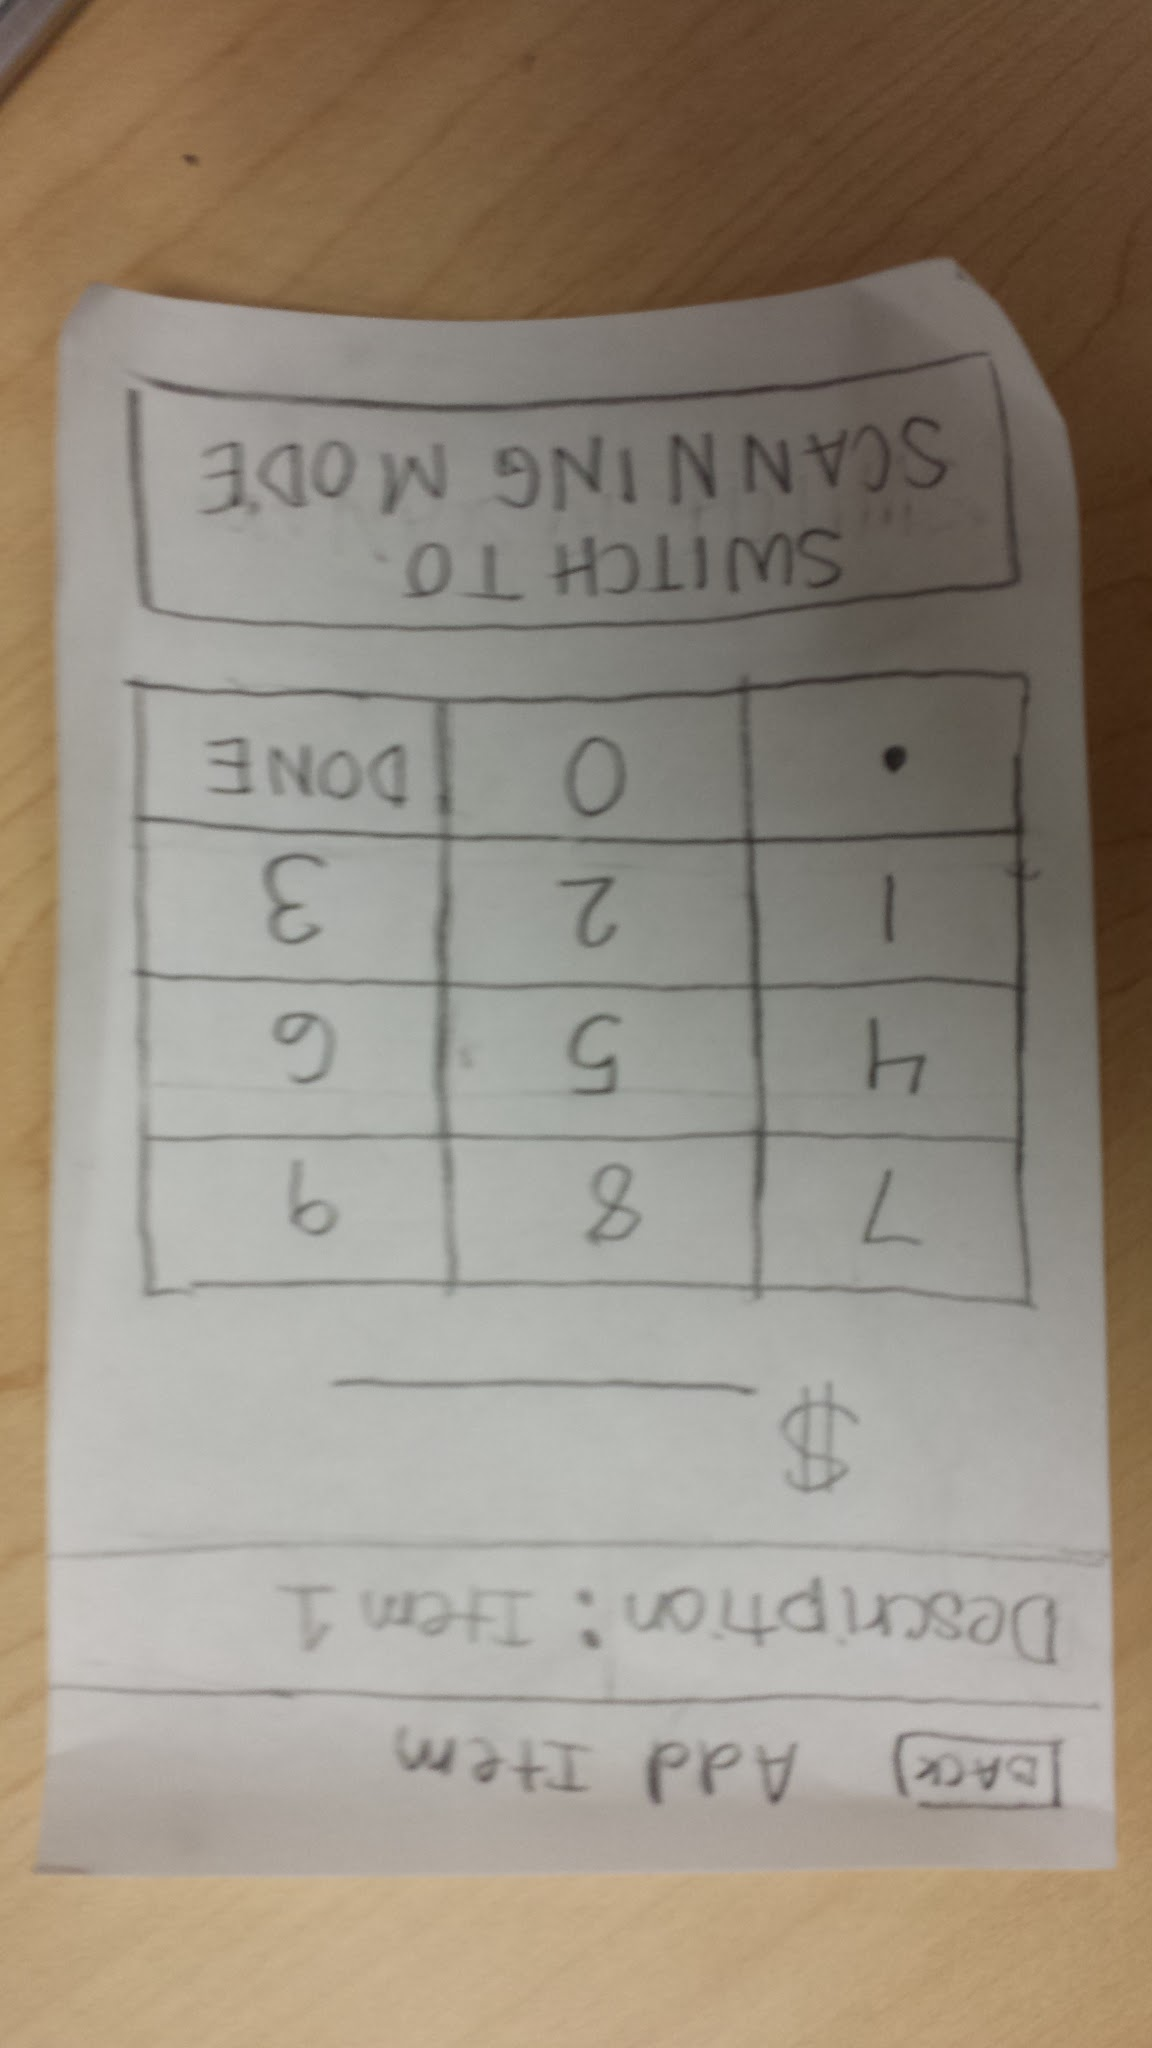 BACK Add Item
Description: Item 1
$
7 8 9
4 5 6
1 2 3
. 0 DONE
SWITCH TO
SCANNING MODE